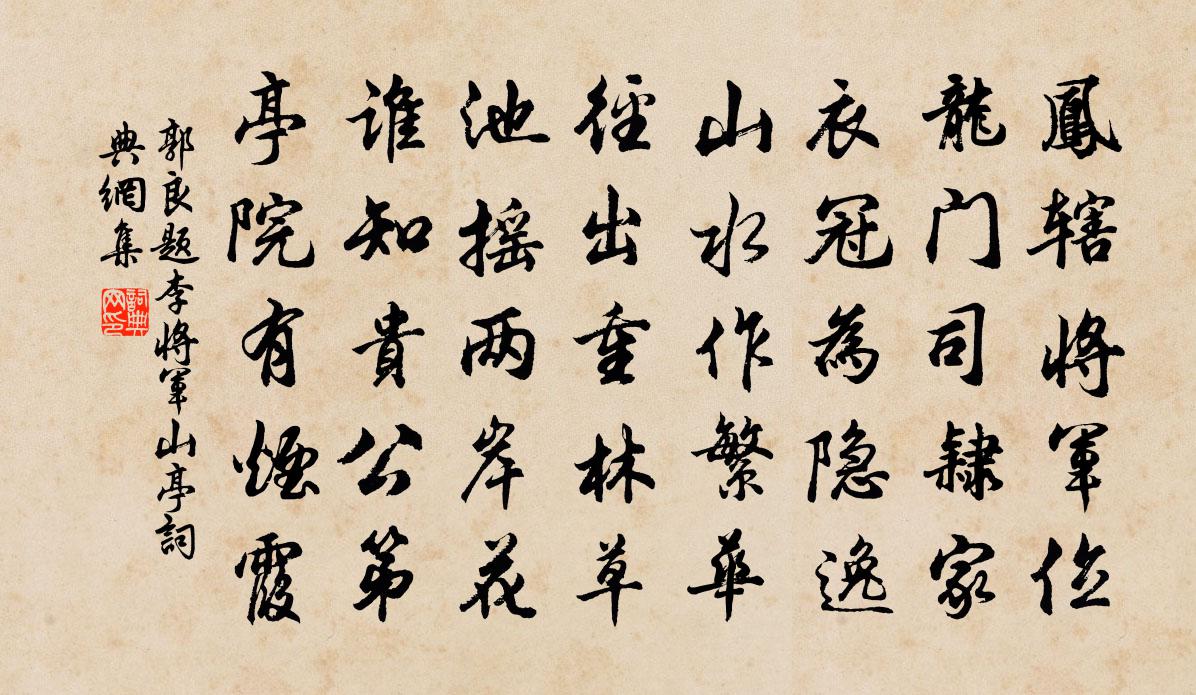 鳳辖將軍位
龍门司隸家
衣冠為隐逸
山水作繁華
徑出重林草
池摇两岸花
谁知貴公第
亭院有煙霞
郭良题李将軍山亭詞
典網集
詞典
网印